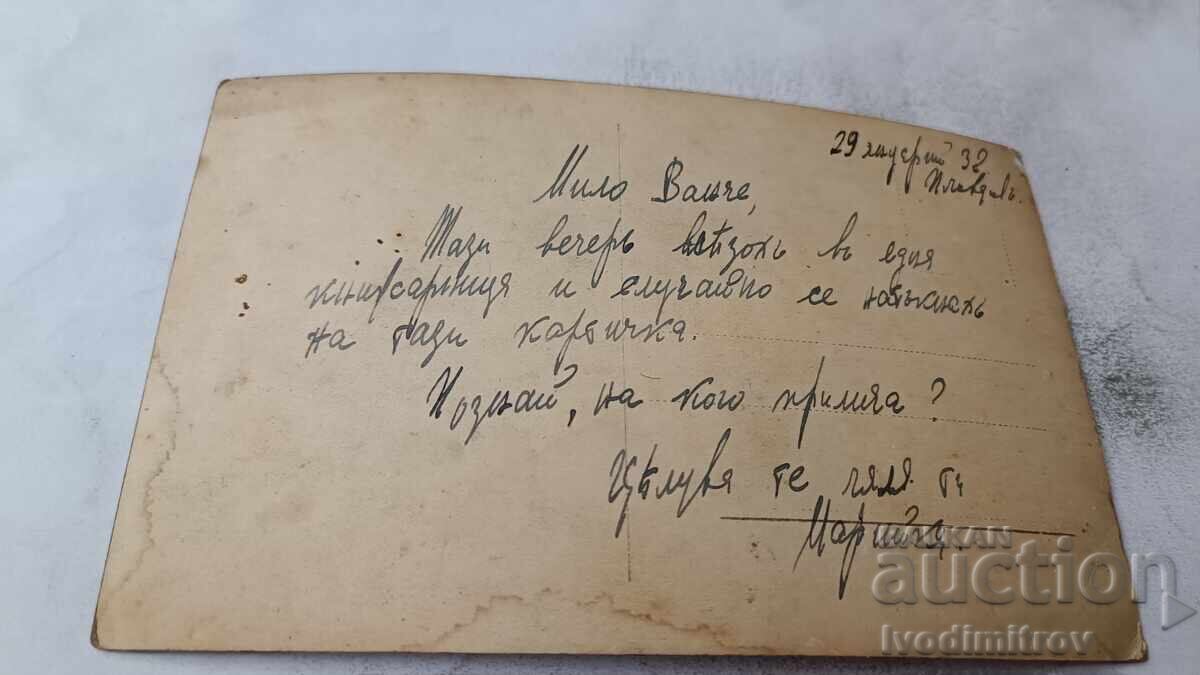 29 януарий 32
Пловдивъ.
Мило Ванче,
Тази вечерь влѣзохъ въ една
книжарница и случайно се натъкнахъ
на тази картичка.
Познай, на кого прилича?
Цѣлува те леля ти
Марийка.
BALKAN
auction
Ivodimitrov